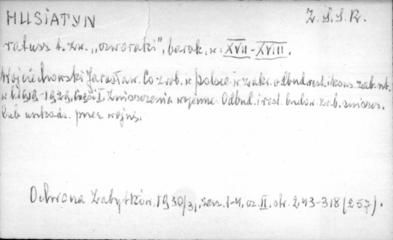 HUSIATYN Z.S.S.R.
ratusz t. zw. "czworaki", barok, w. XVII-XVIII.
Wojciechowski Jarosław. Co zrob. w Polsce w zakr. odbud. rest. i kons. zab. szt.
w l. 1919-1929, część I Zniszczenia wojenne. Odbud. i rest. budow. zab. zniszcz.
lub uszkodz. przez wojnę.
Ochrona Zabytków, 1930/31, zesz. 1-4, cz. II, str. 243-318 (257).